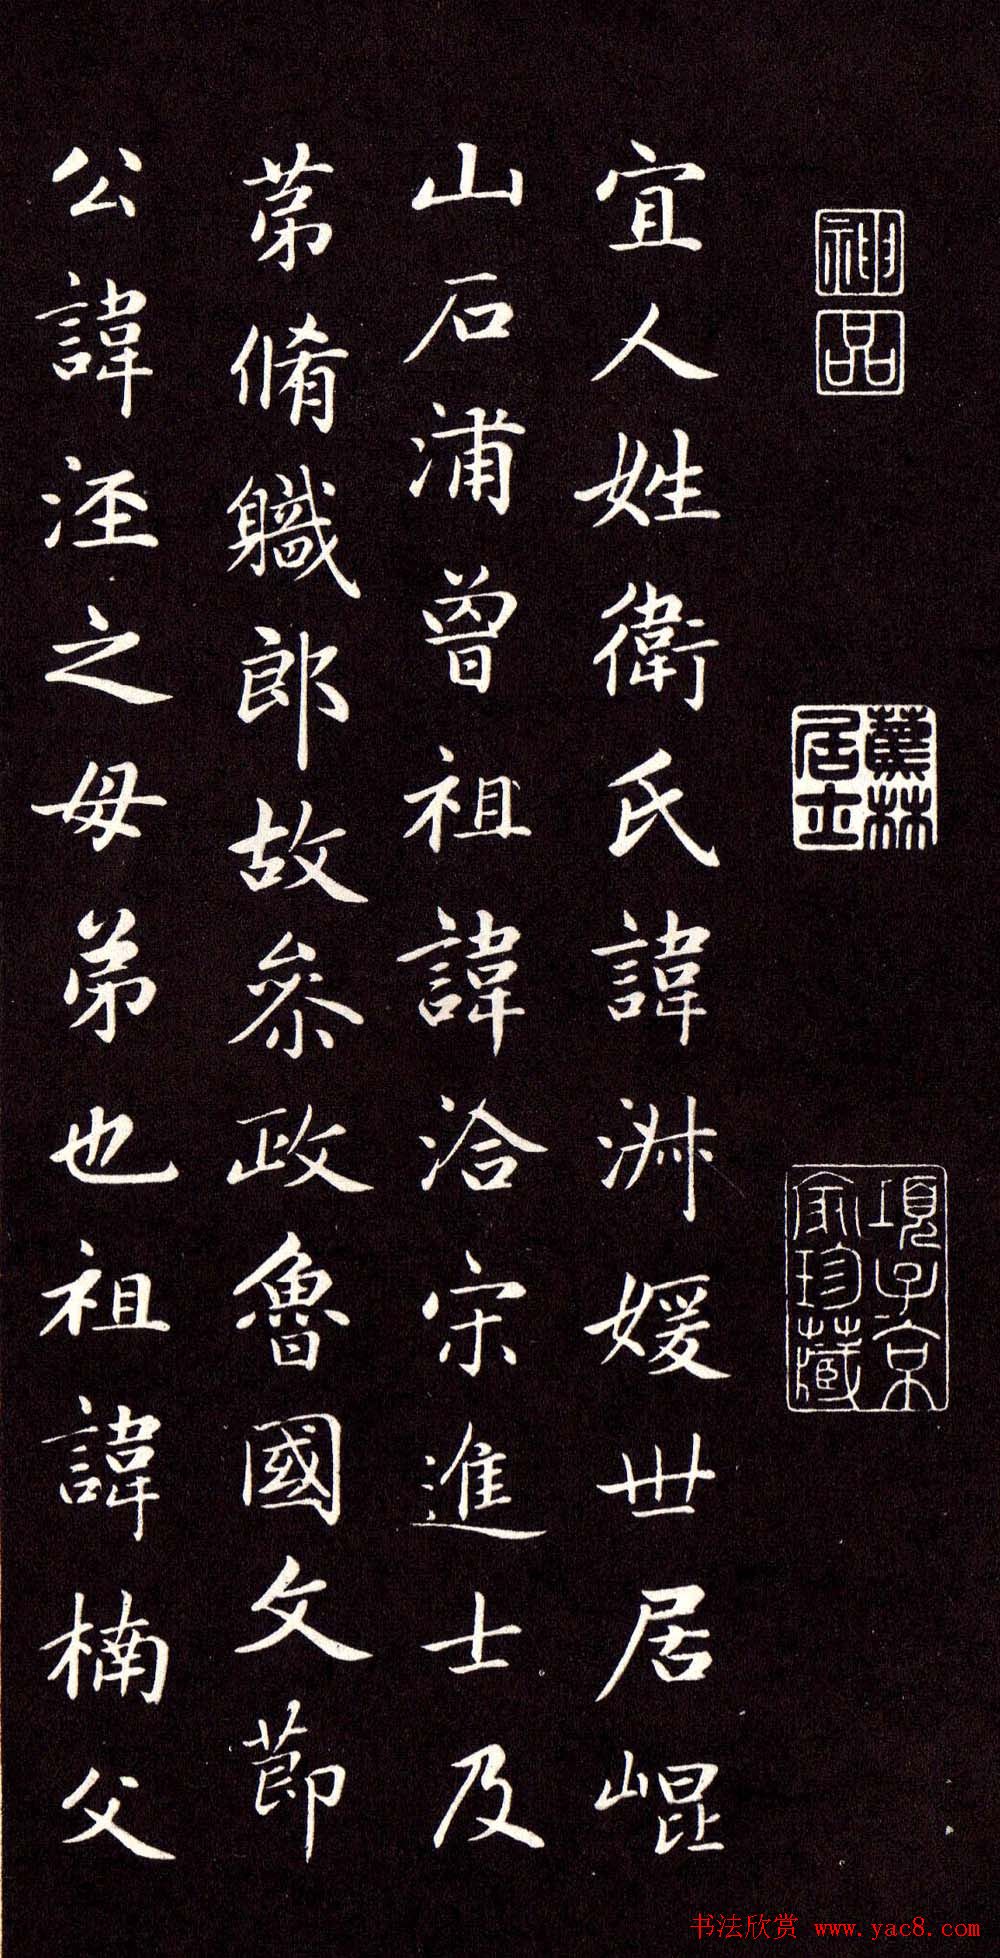 神品
蕉林居士
項子京家珍藏
宜人姓衛氏諱淑媛世居崐
山石浦曾祖諱洽宋進士及
苐脩職郎故叅政魯國文莭
公諱涇之母弟也祖諱楠父
书法欣赏 www.yac8.com